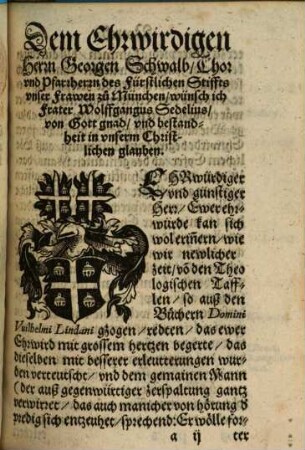 Dem Ehrwirdigen
Herrn Georgen Schwalb/ Chor
vnd Pfarrherrn des Fürstlichen Stiffts
vnser Frawen zů München/ wünsch ich
Frater Wolffgangus Sedelius/
von Gott gnad/ vnd bestand-
heit in vnserm Christ-
lichen glauben.
EHRwürdiger
vnd günstiger
Herr/ Ewer ehr-
würde kan sich
wol erinnern/ wie
wir newlicher
zeit/ võ den Theo
logischen Taff-
len/ so auß den
Büchern Domini
Vuilhelmi Lindani gzogen/ redten/ das ewer
Ehrwird mit grossem hertzen begerte/ das
dieselben mit besserer erleutterungen wur-
den verteutscht/ vnd dem gemainen Mann
(der auß gegenwürtiger zerspaltung gantz
verwirret/ das auch manicher von hörung d
predig sich entzeuhet/ sprechend: Er wölle for-
a ij ter